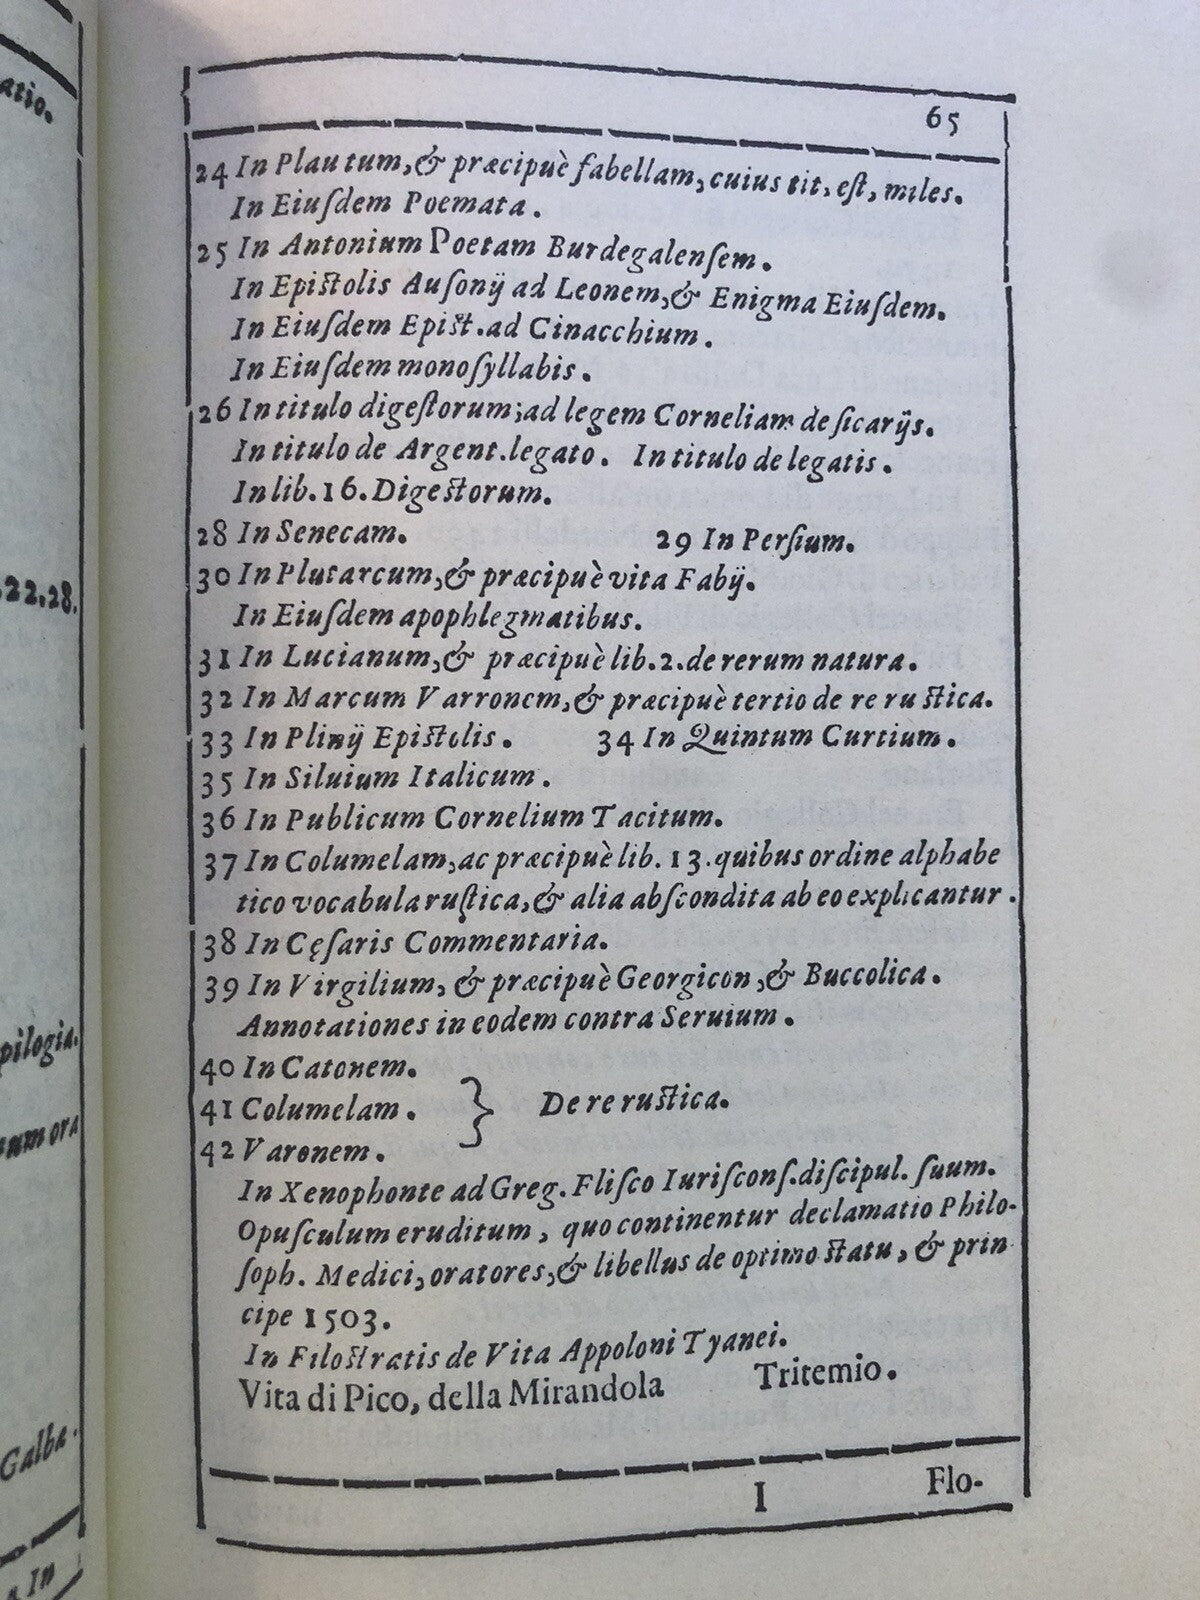 atio.
.22.28.
pilogia.
sum ora
Galba.
In
65
24 In Plautum, & præcipuè fabellam, cuius tit, est, miles.
In Eiusdem Poemata.
25 In Antonium Poetam Burdegalensem.
In Epistolis Ausonij ad Leonem, & Enigma Eiusdem.
In Eiusdem Epist. ad Cinacchium.
In Eiusdem monosyllabis.
26 In titulo digestorum; ad legem Corneliam de sicarijs.
In titulo de Argent. legato. In titulo de legatis.
In lib. 16. Digestorum.
28 In Senecam. 29 In Persium.
30 In Plutarcum, & præcipuè vita Fabij.
In Eiusdem apophlegmatibus.
31 In Lucianum, & præcipuè lib. 2. de rerum natura.
32 In Marcum Varronem, & præcipuè tertio de re rustica.
33 In Plinij Epistolis. 34 In Quintum Curtium.
35 In Siluium Italicum.
36 In Publicum Cornelium Tacitum.
37 In Columelam, ac præcipuè lib. 13. quibus ordine alphabe
tico vocabula rustica, & alia abscondita ab eo explicantur.
38 In Cęsaris Commentaria.
39 In Virgilium, & præcipuè Georgicon, & Buccolica.
Annotationes in eodem contra Seruium.
40 In Catonem.
41 Columelam. } De re rustica.
42 Varonem.
In Xenophonte ad Greg. Flisco Iuriscons. discipul. suum.
Opusculum eruditum, quo continentur declamatio Philo-
soph. Medici, oratores, & libellus de optimo statu, & prin
cipe 1503.
In Filostratis de Vita Appoloni Tyanei.
Vita di Pico, della Mirandola Tritemio.
I Flo-